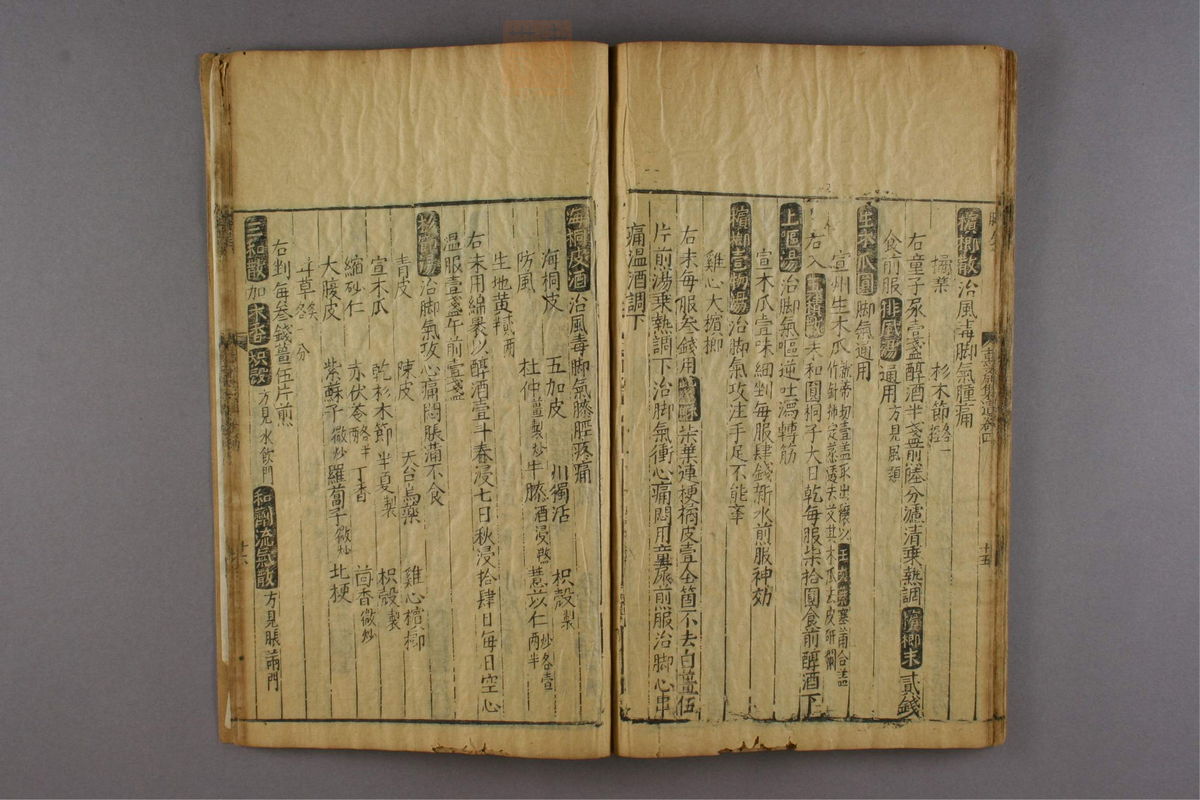 檳榔散治風毒脚氣腫痛
橘葉 杉木節各一握
右童子尿壹盞醇酒半盞煎陸分濾清乗熱調檳榔末貳錢
食前服排風湯通用方見風類
生木瓜圓脚氣通用
宣州生木瓜
右入末和圓桐子大日乾每服柒拾圓食前醇酒下
上嘔湯治脚氣嘔逆吐瀉轉筋
宣木瓜壹味細剉每服肆錢新水煎服神効
檳榔壹物湯治脚氣攻注手足不能举
雞心大檳榔
右末每服叁錢用紫蘇柒葉連梗橘皮壹全箇不去白薑伍
片煎湯乗熱調下治脚氣衝心痛悶用童尿煎服治脚心串
痛温酒調下
海桐皮酒治風毒脚氣膝脛疼痛
海桐皮 五加皮 川獨活 枳殼製
防風 杜仲薑製炒 牛膝酒浸 薏苡仁炒各壹兩半
生地黄貳兩半
右末用綿裹以醇酒壹斗春浸七日秋浸拾肆日每日空心
温服壹盞午前壹盞
檳榔湯治脚氣攻心痛悶脹滿不食
青皮 陳皮 天台烏藥 雞心檳榔
宣木瓜 乾杉木節 半夏製 枳殼製
縮砂仁 赤伏苓各半兩 丁香 茴香微炒
大腹皮 紫蘇子微炒 羅蔔子微炒 北梗
甘草炙各一分
右剉每叁錢薑伍片煎
三和散加木香枳殼方見水飲門 和劑流氣散方見脹滿門